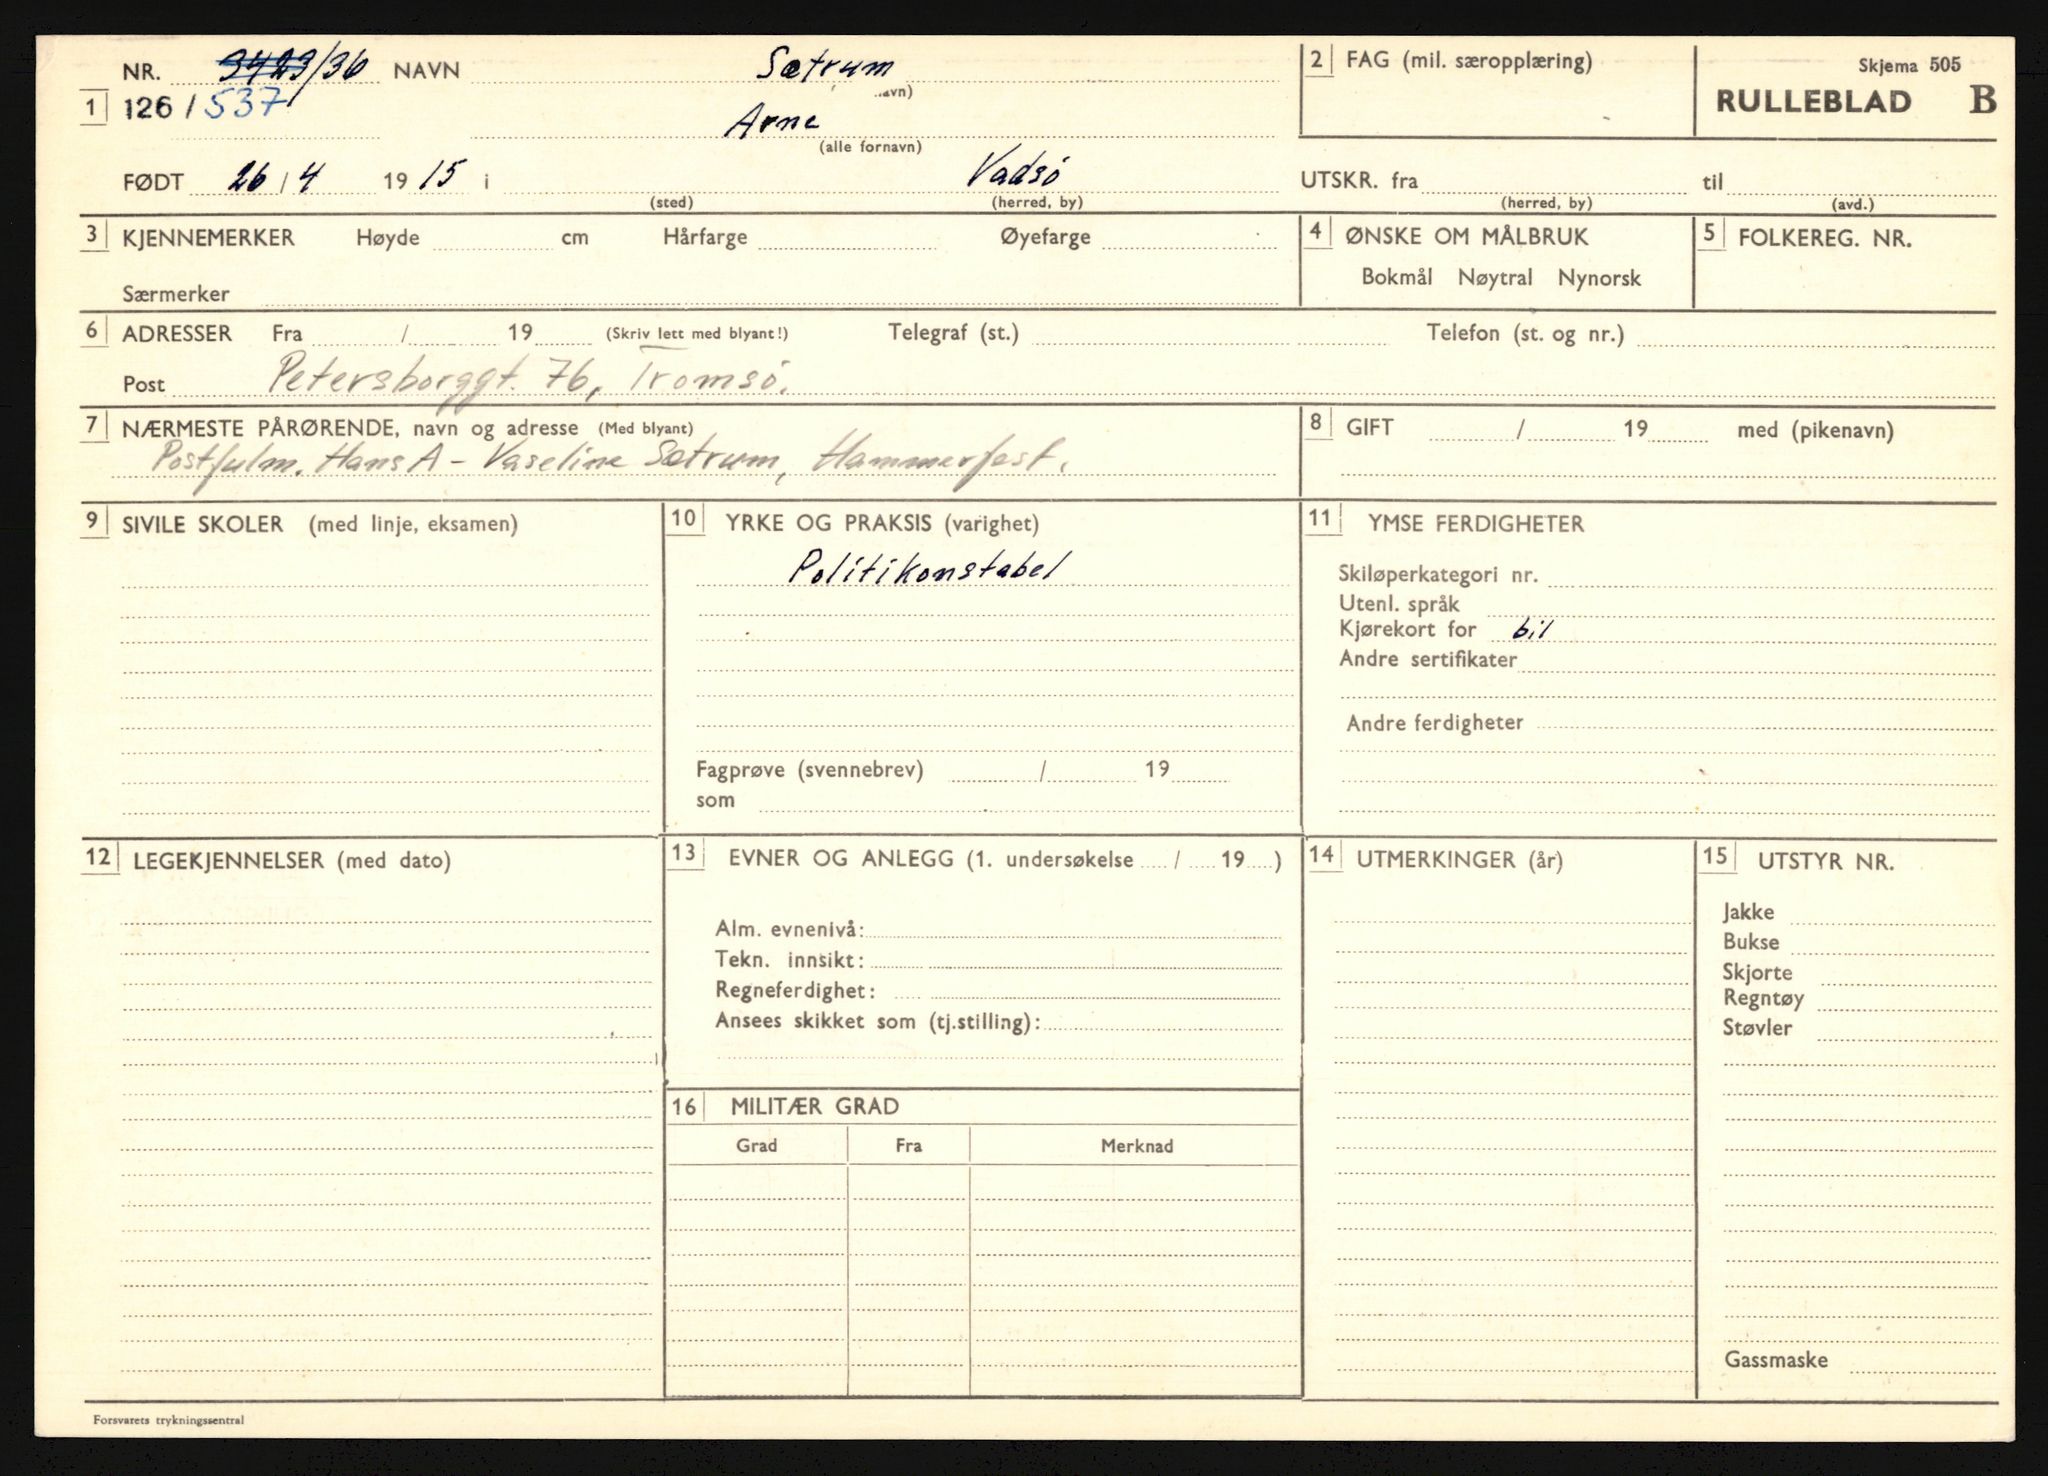 NR. 3423/36 NAVN Sætrum
2 FAG (mil. særopplæring)
Skjema 505
RULLEBLAD B
1 126 / 537
Arne
(alle fornavn)
FØDT 26 / 4 19 15 i Vadsö
(sted) (herred, by)
UTSKR. fra til
(herred, by) (avd.)
3 KJENNEMERKER Høyde cm Hårfarge Øyefarge
Særmerker
4 ØNSKE OM MÅLBRUK
Bokmål Nøytral Nynorsk
5 FOLKEREG. NR.
6 ADRESSER Fra / 19 (Skriv lett med blyant!) Telegraf (st.) Telefon (st. og nr.)
Post Petersborggt. 76, Tromsö.
7 NÆRMESTE PÅRØRENDE, navn og adresse (Med blyant)
Postfulm. Hans A - Vaseline Sætrum, Hammerfest.
8 GIFT / 19 med (pikenavn)
9 SIVILE SKOLER (med linje, eksamen)
10 YRKE OG PRAKSIS (varighet)
Politikonstabel
Fagprøve (svennebrev) / 19
som
11 YMSE FERDIGHETER
Skiløperkategori nr.
Utenl. språk
Kjørekort for bil
Andre sertifikater
Andre ferdigheter
12 LEGEKJENNELSER (med dato)
13 EVNER OG ANLEGG (1. undersøkelse / 19 )
Alm. evnenivå:
Tekn. innsikt:
Regneferdighet:
Ansees skikket som (tj.stilling):
14 UTMERKINGER (år)
15 UTSTYR NR.
Jakke
Bukse
Skjorte
Regntøy
Støvler
Gassmaske
16 MILITÆR GRAD
Grad Fra Merknad
Forsvarets trykningssentral